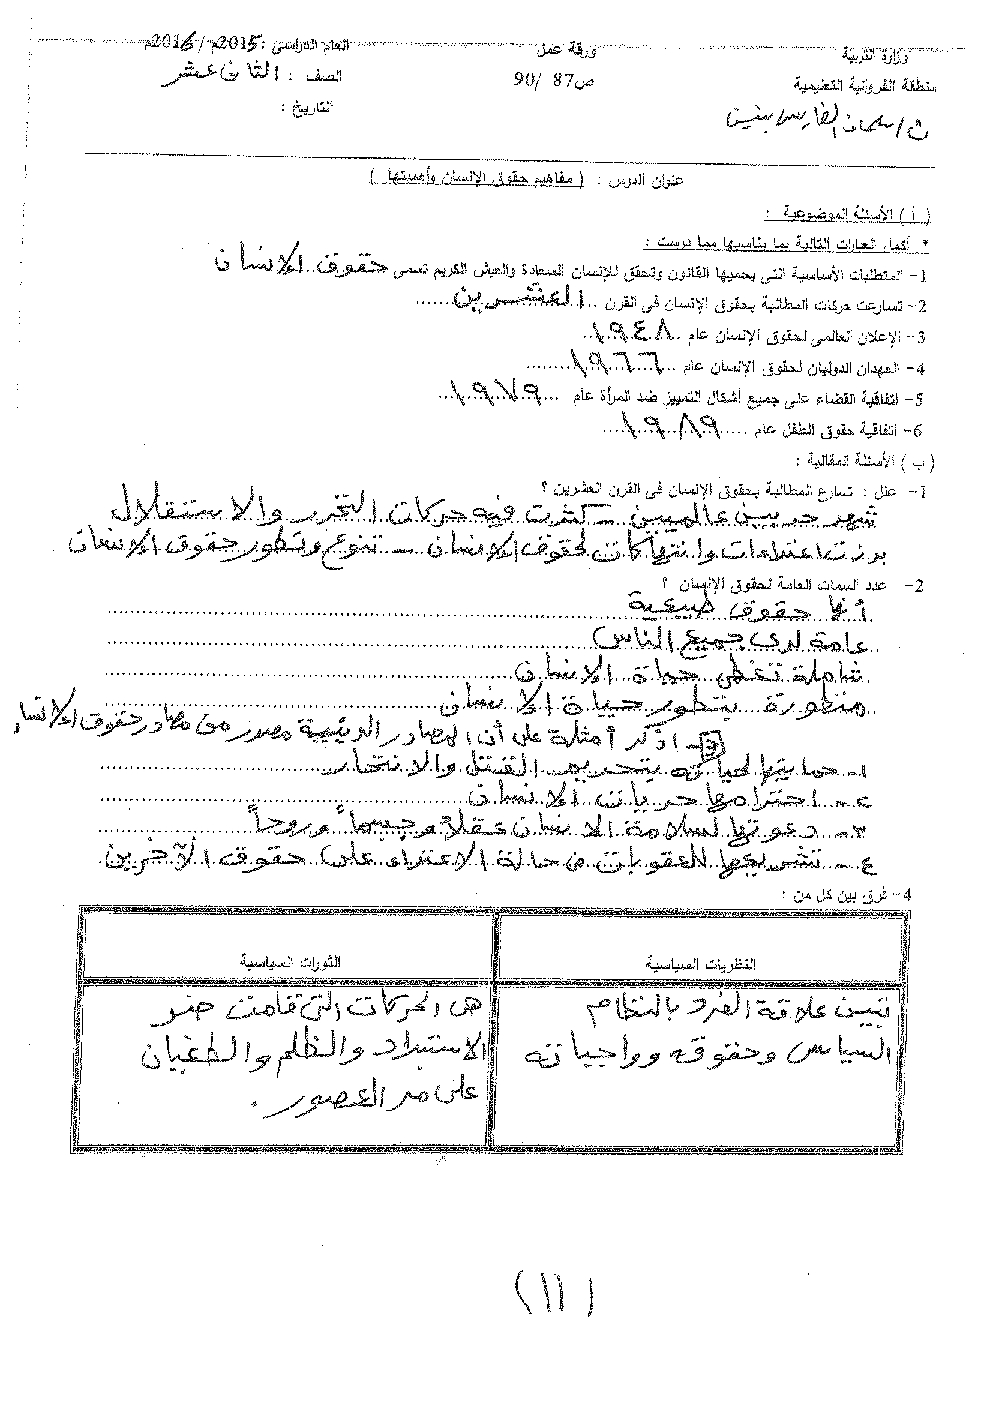 وزارة التربية
ورقة عمل
العام الدراسي : 2015م/2016م
منطقة الفروانية التعليمية
ص87 /90
الصف : الثاني عشر
ث/سلمان الفارسي بنين
التاريخ :
عنوان الدرس : ( مفاهيم حقوق الإنسان وأهميتها )
( أ ) الأسئلة الموضوعية :
* أكمل العبارات التالية بما يناسبها مما درست :
1- المتطلبات الأساسية التي يحميها القانون وتحقق للإنسان السعادة والعيش الكريم تسمى حقوق الانسان
2- تسارعت حركات المطالبة بحقوق الإنسان في القرن ..العشرين......
3- الإعلان العالمي لحقوق الإنسان عام ..١٩٤٨..
4- العهدان الدوليان لحقوق الإنسان عام ...١٩٦٦........
5- اتفاقية القضاء على جميع أشكال التمييز ضد المرأة عام ...١٩٧٩...
6- اتفاقية حقوق الطفل عام .....١٩٨٩...
( ب ) الأسئلة المقالية :
1- علل : تسارع المطالبة بحقوق الإنسان في القرن العشرين ؟
شهد حربين عالميين - كثرت فيه حركات التحرر والاستقلال
برزت اعتداءات وانتهاكات لحقوق الانسان - تنوع وتطور حقوق الانسان
2- عدد السمات العامة لحقوق الإنسان ؟
أنها حقوق طبيعية
عامة لدى جميع الناس
شاملة تغطي حياة الانسان
متطورة بتطور حياة الانسان
3- اذكر أمثلة على أن المصادر الدينية مصدر من مصادر حقوق الانسان
١- حمايتها لحياته بتحريم القتل والانتحار
٢- احترامها حريات الانسان
٣- دعوتها لسلامة الانسان عقلاً وجسماً وروحاً
٤- تشريعها للعقوبات في حالة الاعتداء على حقوق الآخرين
4- فرق بين كل من :
النظريات السياسية
الثورات السياسية
تبين علاقة الفرد بالنظام
السياسي وحقوقه وواجباته
هي الحركات التي قامت ضد
الاستبداد والظلم والطغيان
على مر العصور .
(١١)